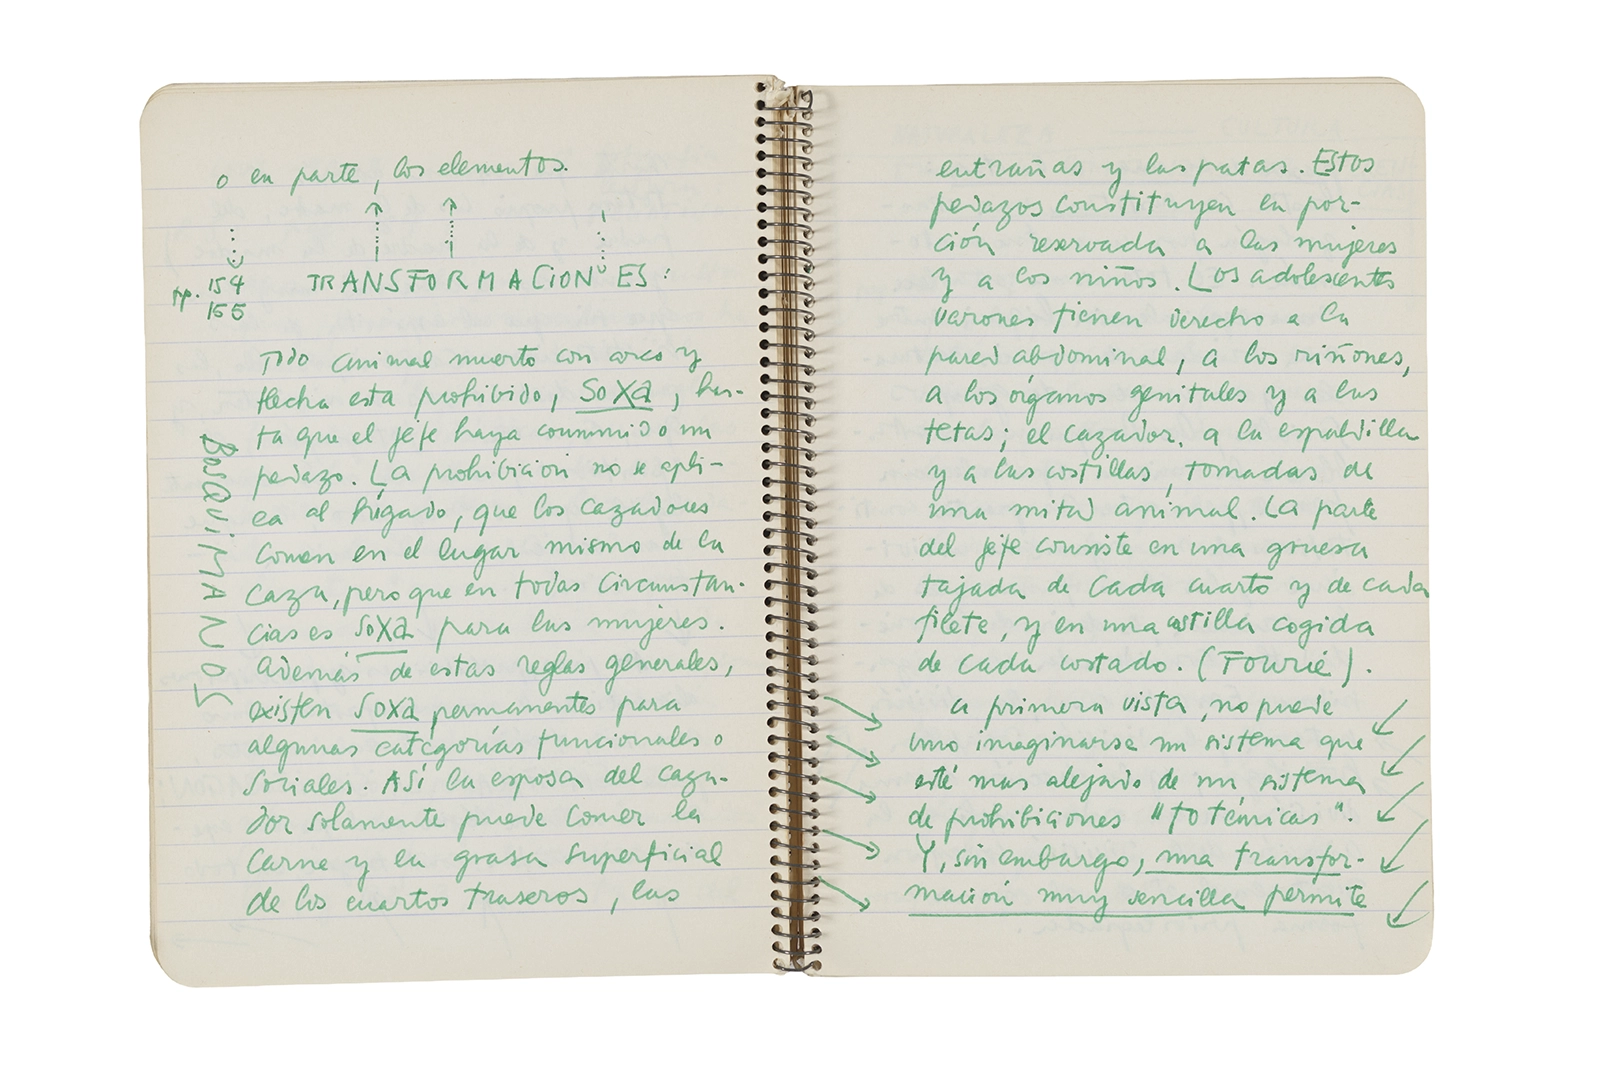 o en parte, los elementos.
pp. 154
155
TRANSFORMACIONES:
BOSQUIMANOS
Todo animal muerto con arco y
flecha esta prohibido, soxa, has-
ta que el jefe haya consumido un
pedazo. La prohibición no se apli-
ca al hígado, que los cazadores
comen en el lugar mismo de la
caza, pero que en todas circunstan-
cias es soxa para las mujeres.
Además de estas reglas generales,
existen soxa permanentes para
algunas categorías funcionales o
sociales. Así la esposa del caza-
dor solamente puede comer la
carne y la grasa superficial
de los cuartos traseros, las
entrañas y las patas. Estos
pedazos constituyen la por-
ción reservada a las mujeres
y a los niños. Los adolescentes
varones tienen derecho a la
pared abdominal, a los riñones,
a los órganos genitales y a las
tetas; el cazador, a la espaldilla
y a las costillas, tomadas de
una mitad animal. La parte
del jefe consiste en una gruesa
tajada de cada cuarto y de cada
filete, y en una costilla cogida
de cada costado. (Fourie).
a primera vista, no puede
uno imaginarse un sistema que
esté mas alejado de un sistema
de prohibiciones "totémicas".
Y, sin embargo, una transfor-
mación muy sencilla permite